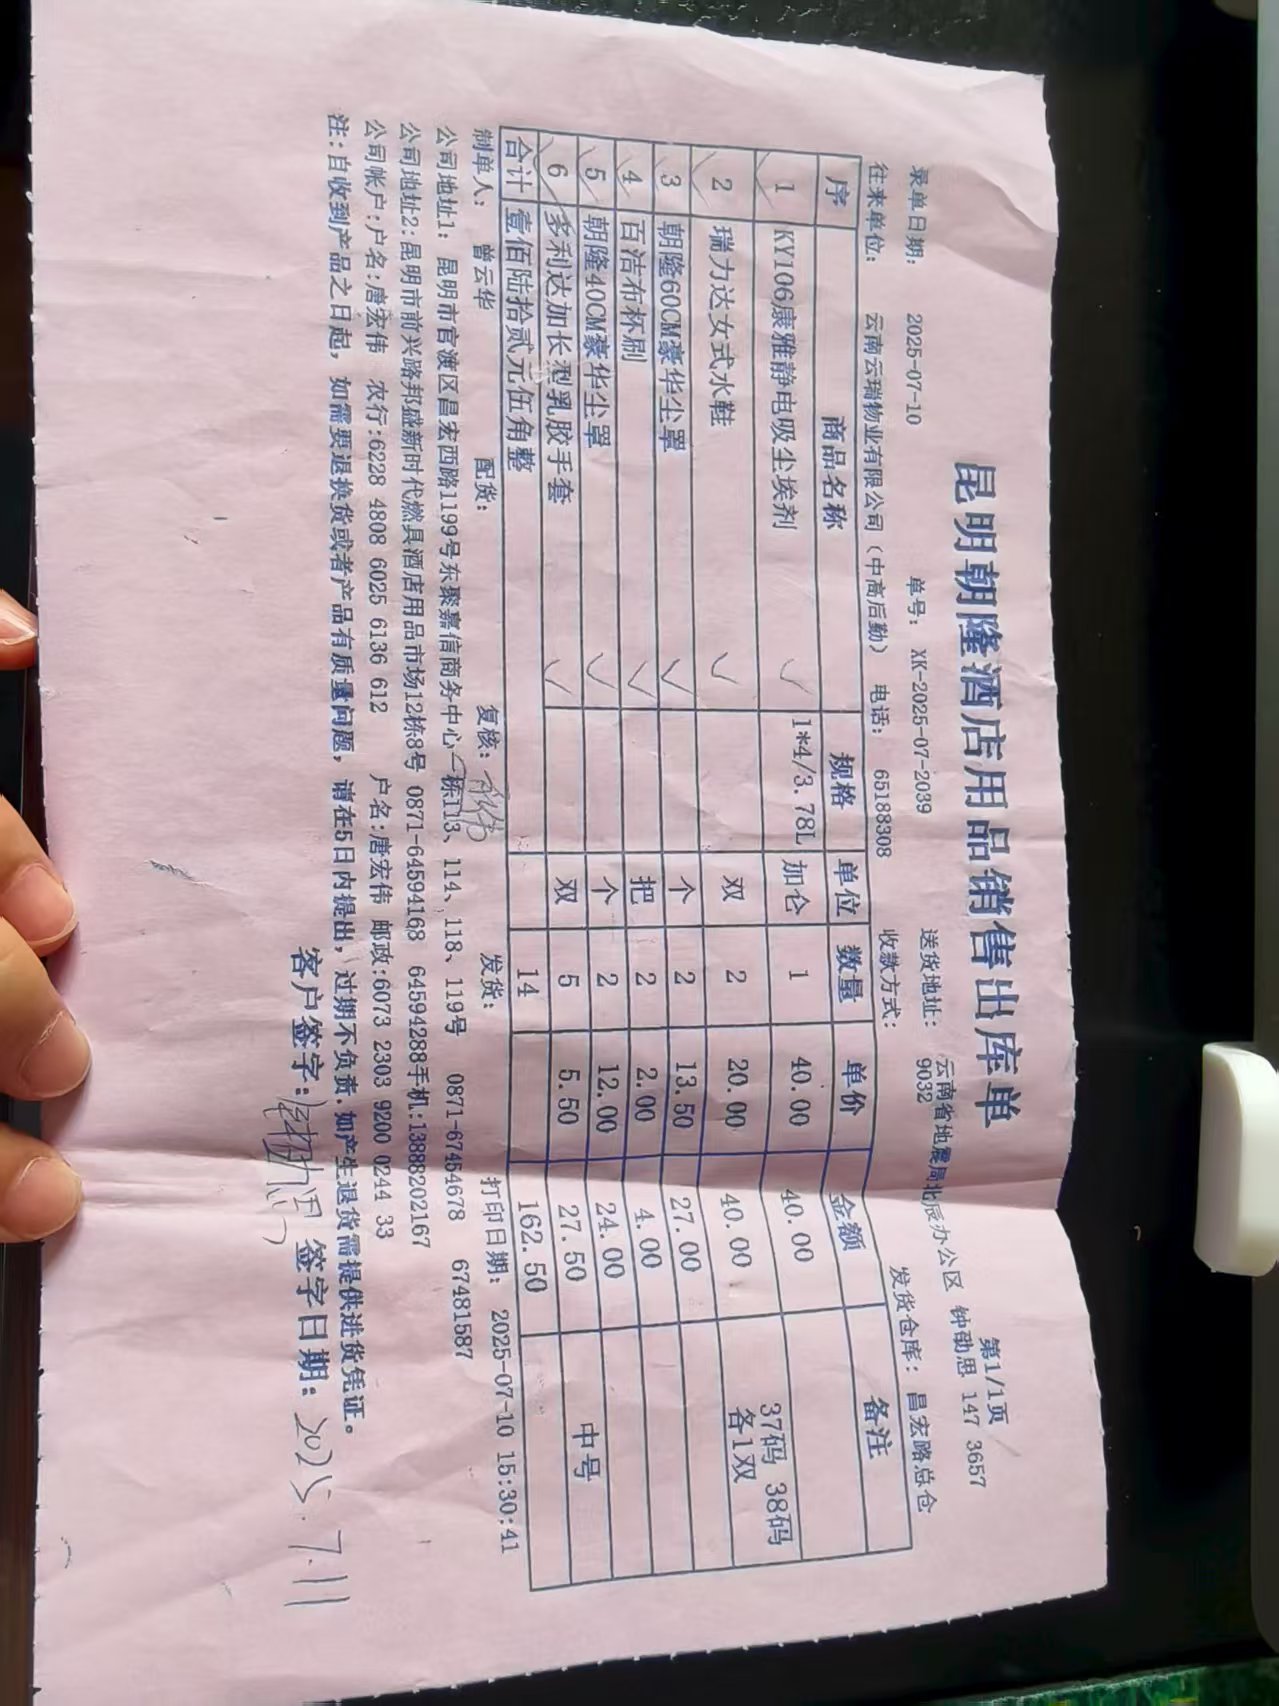 昆明朝隆酒店用品销售出库单
第1/1页
录单日期: 2025-07-10 单号: XK-2025-07-2039 送货地址: 云南省地震局北辰办公区 钟勋思 147 3657 9032
往来单位: 云南云瑞物业有限公司(中高后勤) 电话: 65188308 收款方式: 发货仓库: 昌宏路总仓
序 商品名称 规格 单位 数量 单价 金额 备注
1 KY106康雅静电吸尘埃剂 1*4/3.78L 加仑 1 40.00 40.00
2 瑞力达女式水鞋 双 2 20.00 40.00 37码 38码 各1双
3 朝隆60CM豪华尘罩 个 2 13.50 27.00
4 百洁布杯刷 把 2 2.00 4.00
5 朝隆40CM豪华尘罩 个 2 12.00 24.00
6 多利达加长型乳胶手套 双 5 5.50 27.50 中号
合计 壹佰陆拾贰元伍角整 14 162.50
制单人: 曾云华 配货: 复核: 发货: 打印日期: 2025-07-10 15:30:41
公司地址1: 昆明市官渡区昌宏西路1199号东聚嘉信商务中心一栋113、114、118、119号 0871-67454678 67481587
公司地址2:昆明市前兴路邦盛新时代燃具酒店用品市场12栋8号 0871-64594168 64594288手机:13888202167
公司帐户:户名:唐宏伟 农行:6228 4808 6025 6136 612 户名:唐宏伟 邮政:6073 2303 9200 0244 33
注:自收到产品之日起, 如需要退换货或者产品有质量问题, 请在5日内提出, 过期不负责.如产生退货需提供进货凭证。
客户签字: 签字日期: 2025.7.11